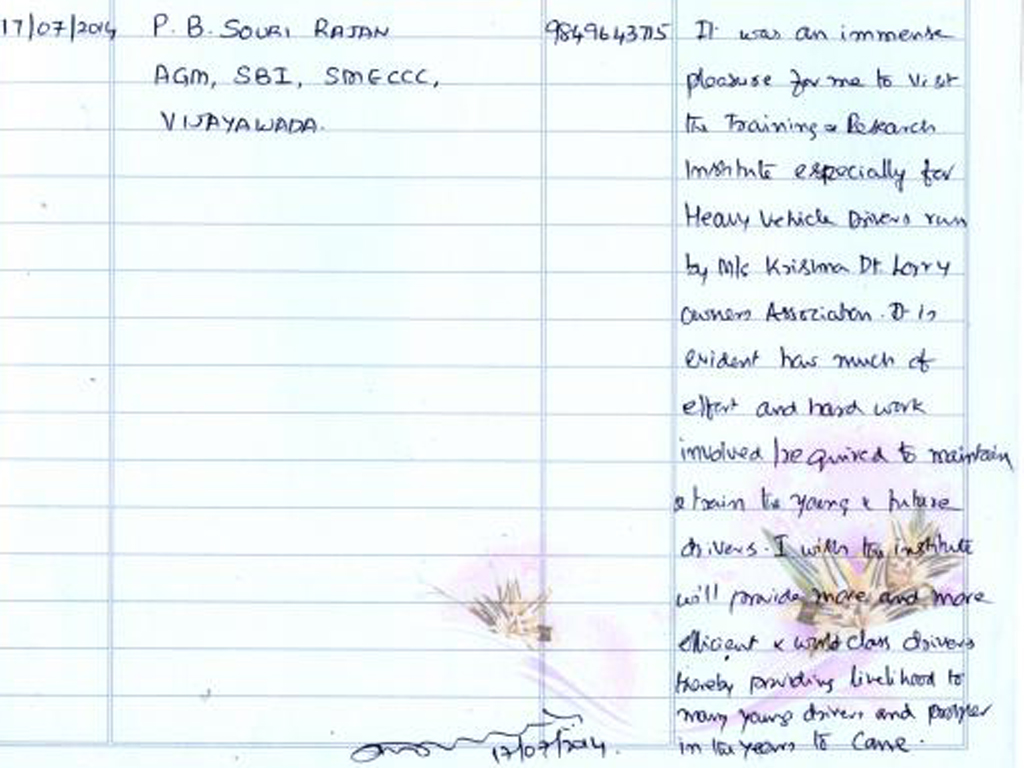 17/07/2014
P. B. SOURI RAJAN
AGM, SBI, SMECCC,
VIJAYAWADA.
9849643715
It was an immense
pleasure for me to visit
the Training & Research
Institute especially for
Heavy Vehicle Drivers run
by M/s Krishna Dt. Lorry
owners Association. It is
evident how much of
effort and hard work
involved/required to maintain
& train the young & future
drivers. I wish the institute
will provide more and more
efficient & world class drivers
thereby providing livelihood to
many young drivers and prosper
in the years to come.
17/07/2014.